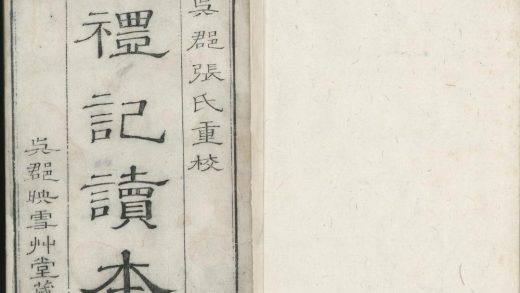 吳郡張氏重校
禮記讀本
吳郡映雪艸堂藏